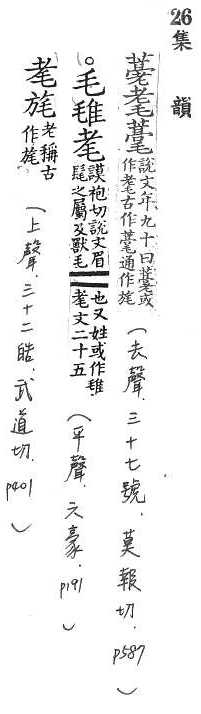 26 集 韻
耄 說文年九十曰 或作耄古作 通作旄 (去聲.三十七號.莫報切.p587)
。毛 耄 謨袍切說文眉髦之屬及獸毛也又姓或作 耄文二十五 (平聲.六豪.p191)
耄旄 老稱古作旄 (上聲.三十二皓.武道切.p401)